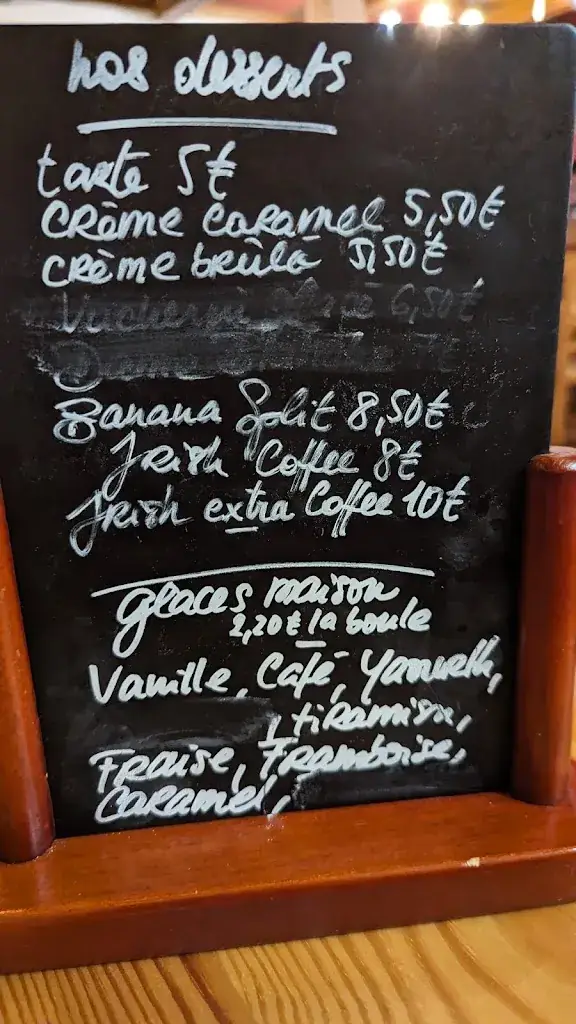 nos desserts
tarte 5€
CRème caramel 5,50€
CRème brûlà 5,50€
glacé 6,50€
7€
Banana Split 8,50€
IRish Coffee 8€
IRish extra Coffee 10€
glaces maison
2,20€ la boule
Vanille, Café, Yaourth,
tiRamisu,
FRaise, FRamboise,
CaRamel,